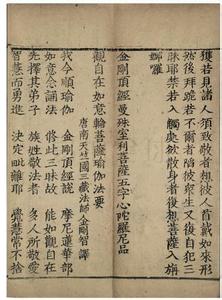 獲若見諸人須致敬者想彼人首戴如來形
然後拜跪若不爾者陷彼衆生又復自犯三
昧耶禁若入觸處欲散身者後想菩薩入
囉
金剛頂經曼殊室利菩薩五字心陀羅尼品
觀自在如意輪菩薩瑜伽法要
唐南天竺國三藏法師金剛智譯
我今順瑜伽 金剛頂經說 摩尼蓮華部
如意念誦法 修此三昧故 能如觀自在
先擇其弟子 族姓敬法者 多人所敬愛
智慧而勇進 決定毗離耶 覺慧常不捨